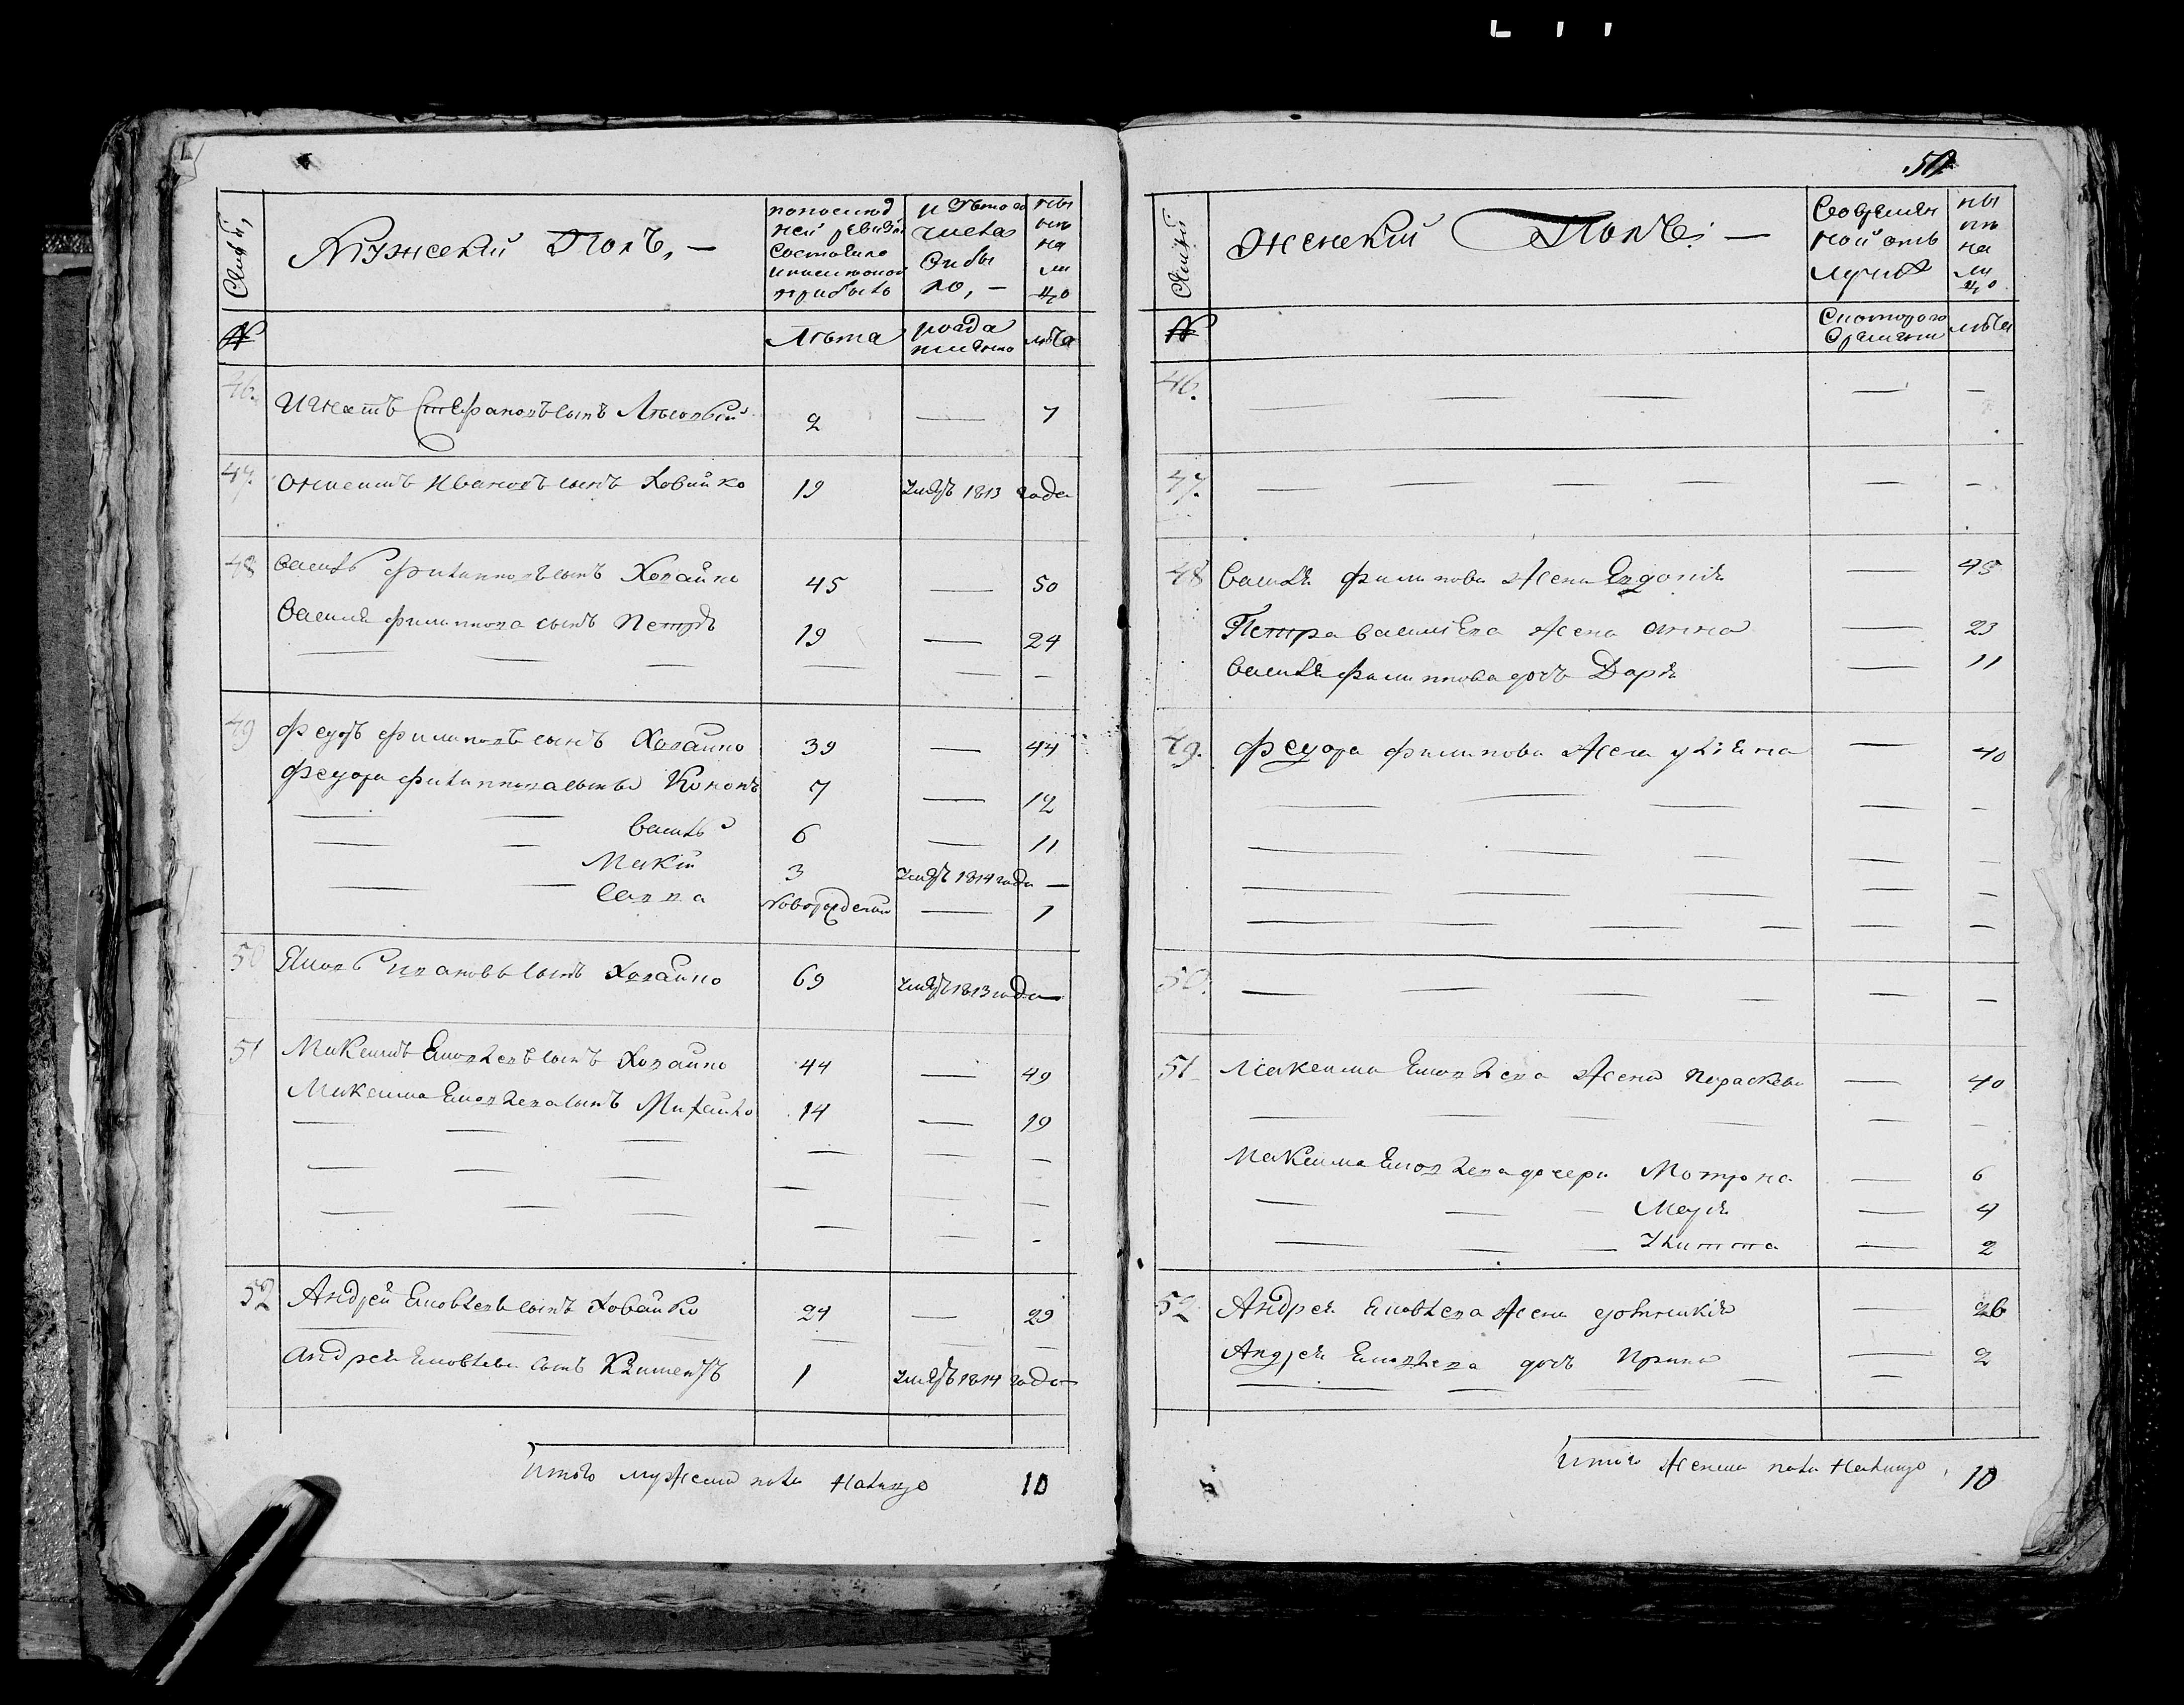 Мужеский Полъ, —
по послед
ней ревизи
состояло
и после оной
прибыло
изъ того
числа
выбы
ло, —
ны
не
на
ли
цо
№
Лета
когда
именно
лета
46.
Игнатъ Стефановъ сынъ
2
—
7
47.
Иванов сынъ Ховайко
19
умеръ 1813 года
48
Василь Филипповъ сынъ Ховайко
45
—
50
Василя Филиппова сынъ Петръ
19
—
24
49
Федоръ Филиповъ сынъ Ховайко
39
—
44
Федора Филиппова сыновья Кононъ
7
—
12
Василь
6
—
11
Макій
3
умеръ 1814 года —
Савва
Новорожденный
—
1
50
Яковъ Ивановъ сынъ Ховайко
69
умеръ 1813 года —
51
Максимъ Яковлевъ сынъ Ховайко
44
—
49
Максима Яковлева сынъ Михайло
14
—
19
52
Андрей Яковлевъ сынъ Ховайко
24
—
29
Андрея Яковлева сынъ
1
умеръ 1814 года —
Итого мужеска пола налицо 10
50
Женский Полъ: —
ны
не
на
ли
цо
№
лета
46.
47.
48
Василя Филипова жена Евдокія
—
45
Петра Василева жена Анна
—
23
Василя Филиппова дочь Дарія
—
11
49.
Федора Филипова жена Уліяна
—
40
50.
51
Максима Яковлева жена Параскева
—
40
Максима Яковлева дочери Мотрона
—
6
Марія
—
4
—
2
52
Андрея Яковлева жена
—
26
Андрея Яковлева дочь Ирина
—
2
Итого женска пола налицо, 10